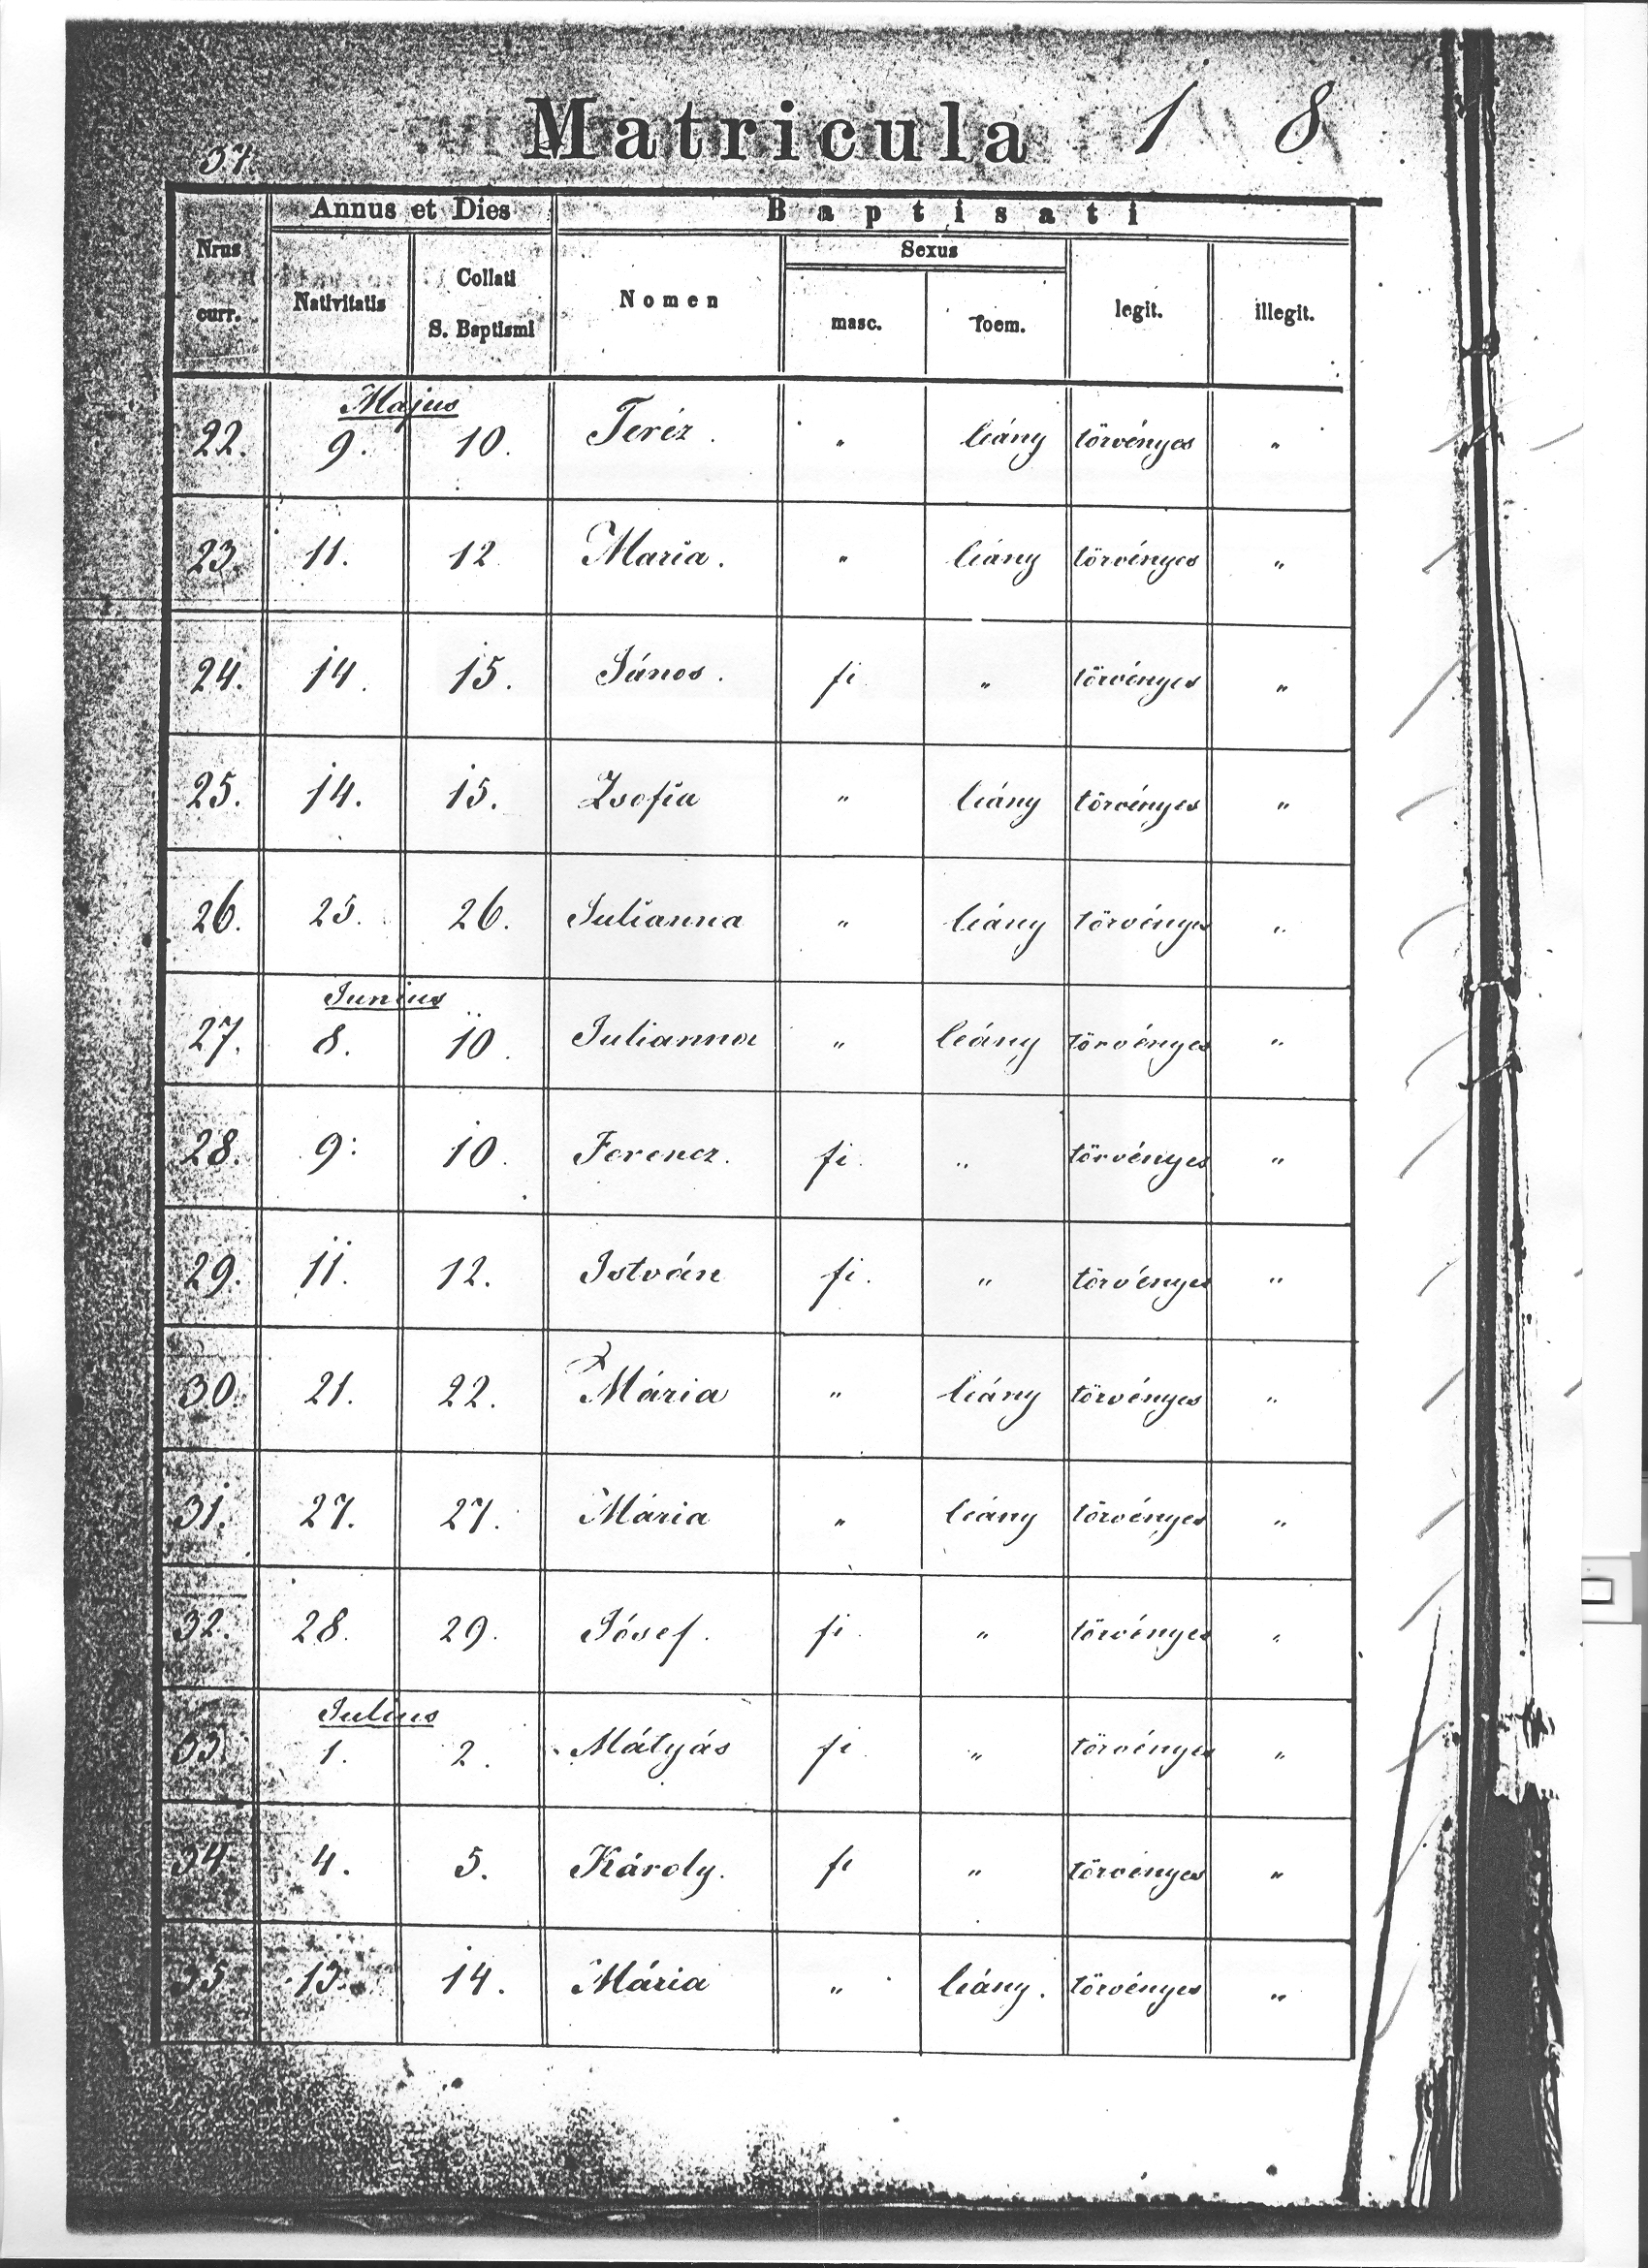 Matricula 1 8
37.
Annus et Dies Baptisati
Nrus curr. Nativitatis Collati S. Baptismi Nomen Sexus masc. foem. legit. illegit.
Majus
22. 9. 10. Teréz. " leány törvényes "
23. 11. 12 Maria. " leány törvényes "
24. 14. 15. János. fi " törvényes "
25. 14. 15. Zsofia " leány törvényes "
26. 25. 26. Julianna " leány törvényes "
Junius
27. 8. 10. Julianna " leány törvényes "
28. 9. 10. Ferencz. fi. " törvényes "
29. 11. 12. István fi. " törvényes "
30. 21. 22. Mária " leány törvényes "
31. 27. 27. Mária " leány törvényes "
32. 28. 29. Jósef. fi. " törvényes "
Julius
33 1. 2. Mátyás fi. " törvényes "
34 4. 5. Károly. fi " törvényes "
35 13. 14. Mária " leány. törvényes "